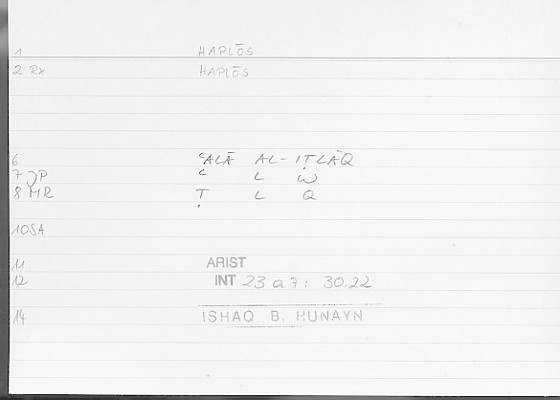 1 HAPLŌS
2 RX HAPLŌS
6 ʿALĀ AL-IṬLĀQ
7 JP ʿ L W
8 MR Ṭ L Q
10 SA
11 ARIST
12 INT 23 a 7: 30.22
14 ISHAQ B. HUNAYN